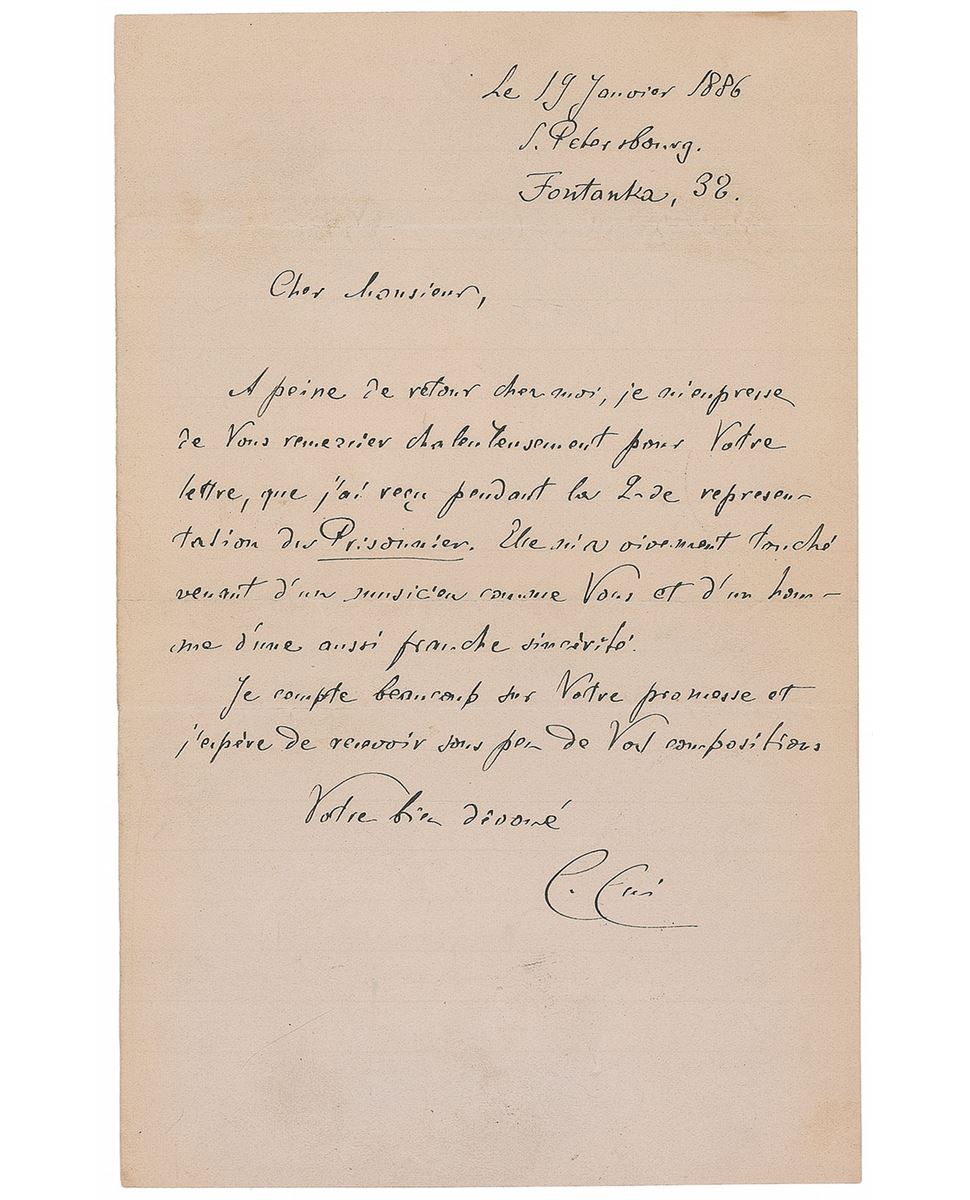 Le 19 Janvier 1886
S. Petersbourg.
Fontanka, 38.
Cher Monsieur,
A peine de retour chez moi, je m'empresse
de Vous remercier chaleureusement pour Votre
lettre, que j'ai reçu pendant la 2-de represen-
tation du Prisonnier. Elle m'a vivement touché
venant d'un musicien comme Vous et d'un hom-
me d'une aussi franche sincérité.
Je compte beaucoup sur Votre promesse et
j'espère de recevoir sous peu de Vos compositions
Votre bien dévoué
C. Cui